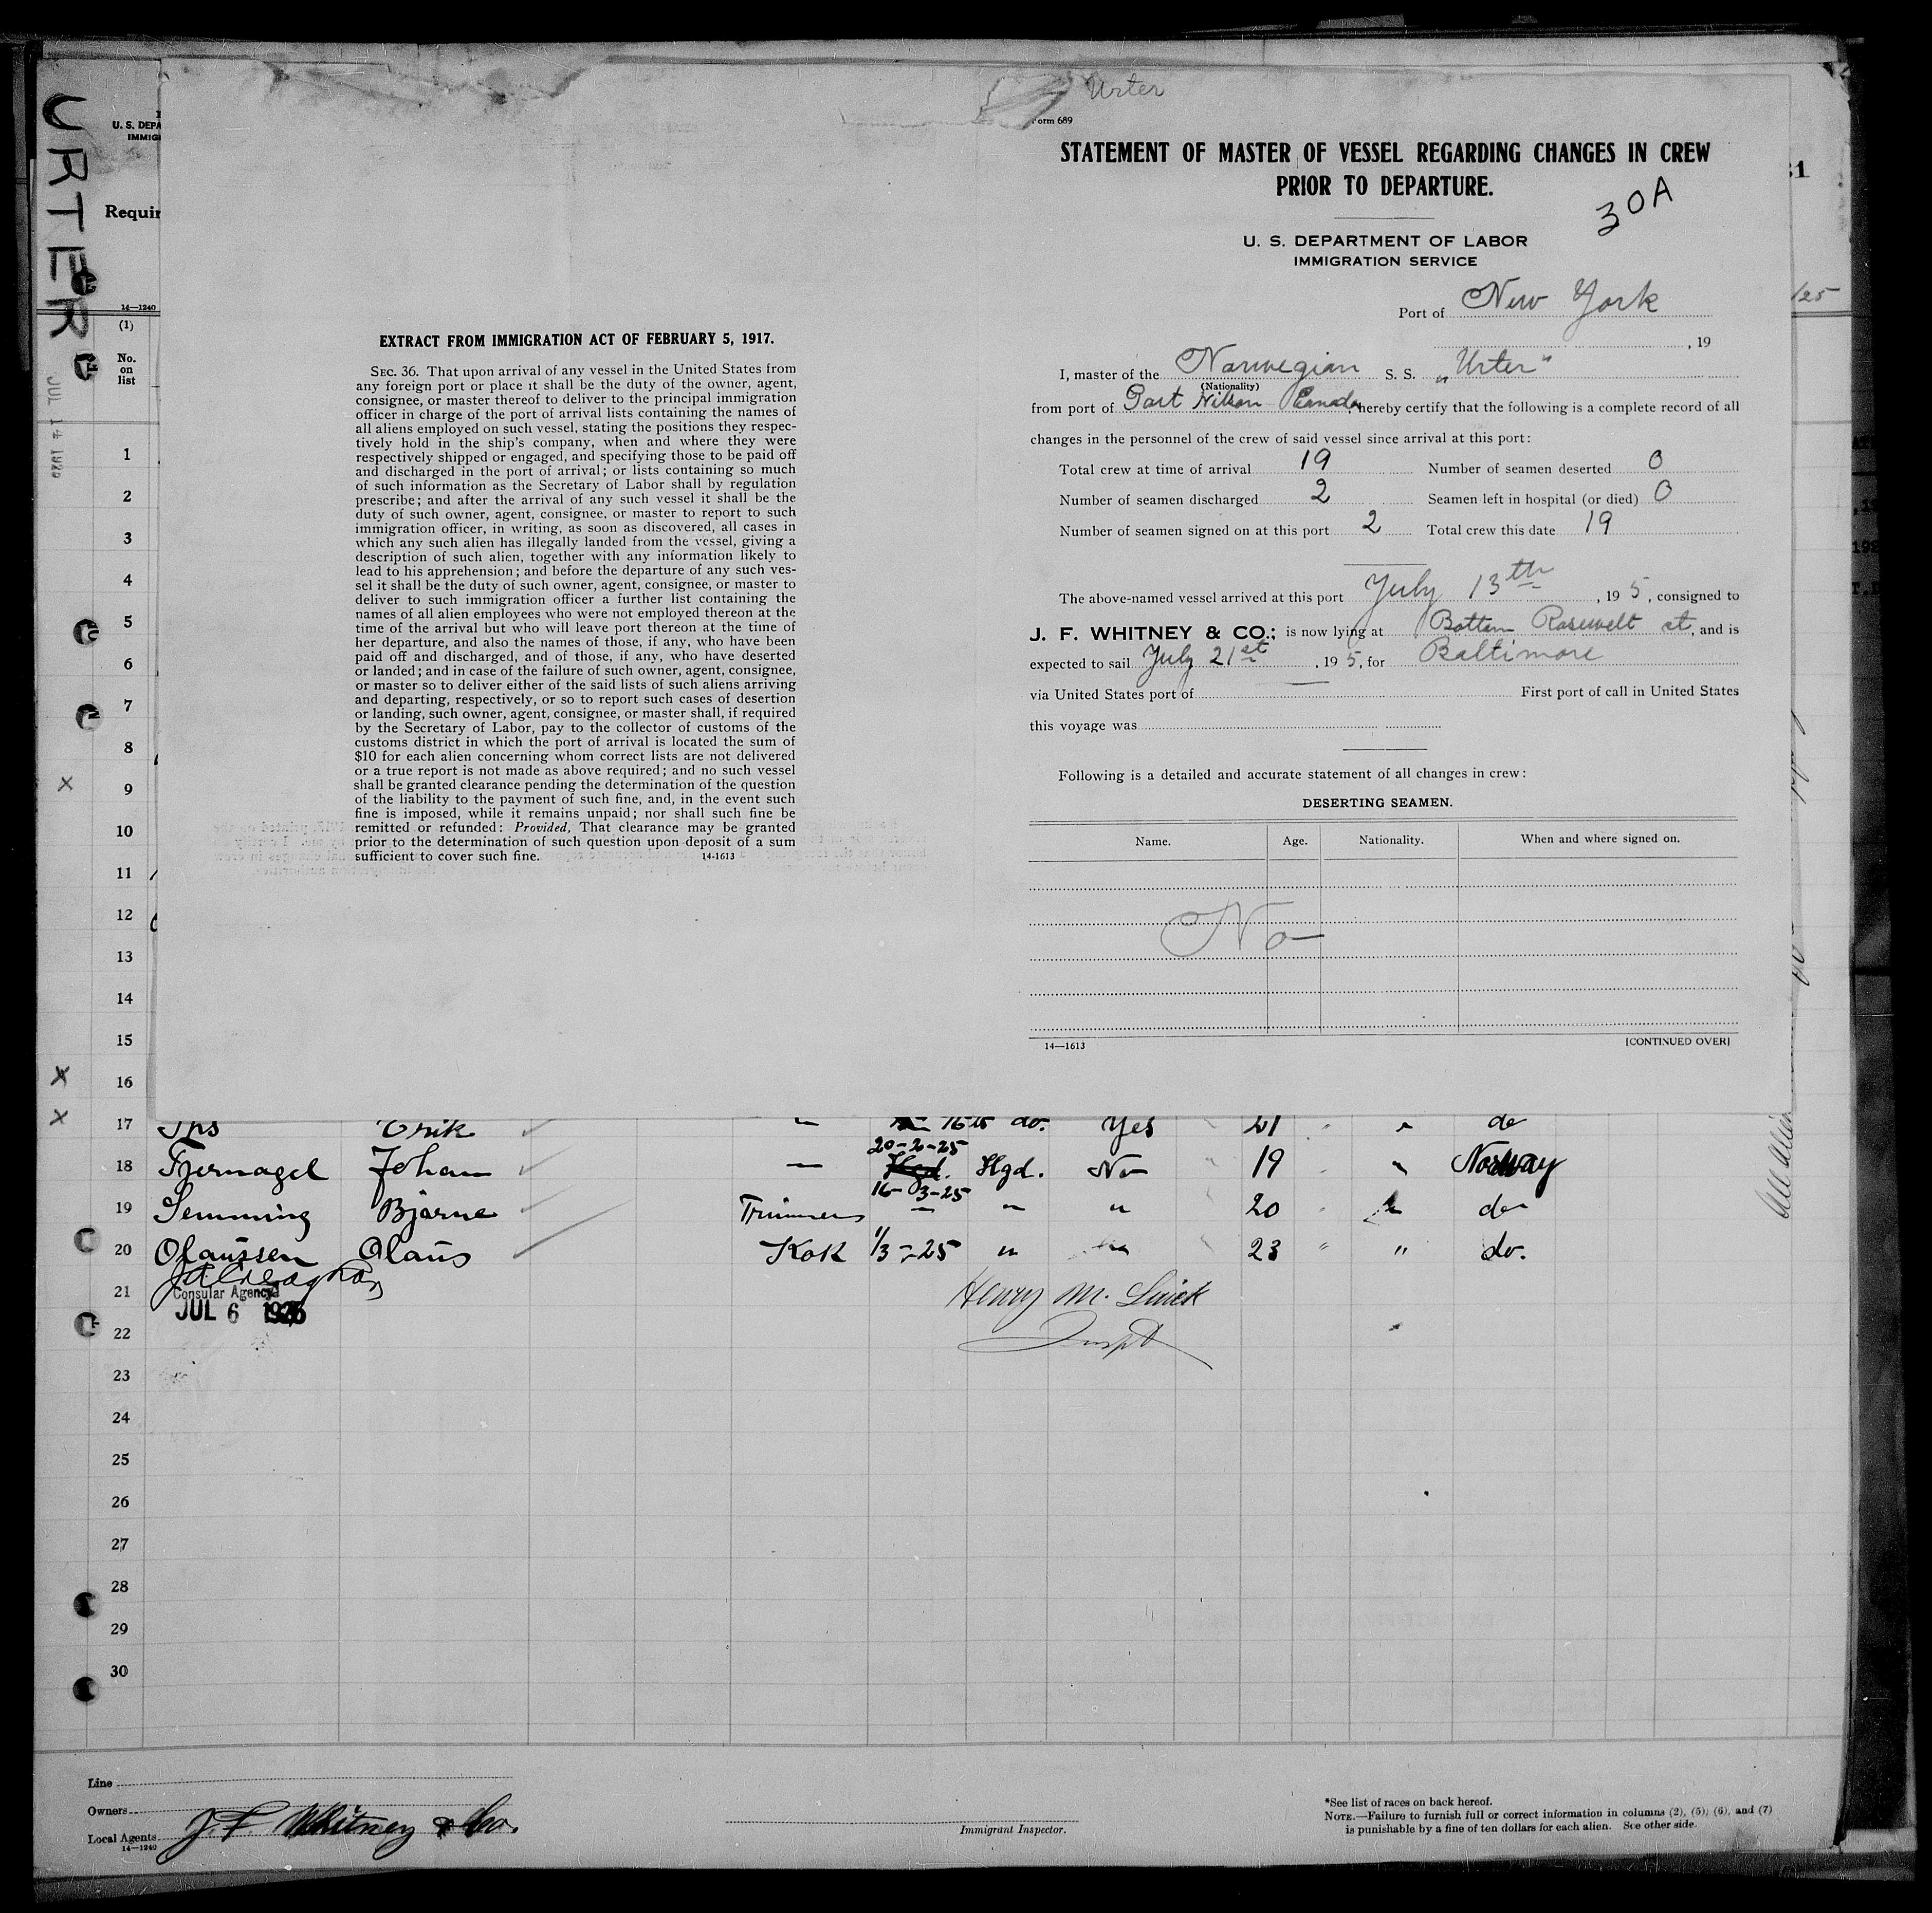 URTER
JUL 14 1925
U. S. DEPA
IMMIG
Requir
14—1240
(1)
No.
on
list
EXTRACT FROM IMMIGRATION ACT OF FEBRUARY 5, 1917.
SEC. 36. That upon arrival of any vessel in the United States from
any foreign port or place it shall be the duty of the owner, agent,
consignee, or master thereof to deliver to the principal immigration
officer in charge of the port of arrival lists containing the names of
all aliens employed on such vessel, stating the positions they respec-
tively hold in the ship's company, when and where they were
respectively shipped or engaged, and specifying those to be paid off
and discharged in the port of arrival; or lists containing so much
of such information as the Secretary of Labor shall by regulation
prescribe; and after the arrival of any such vessel it shall be the
duty of such owner, agent, consignee, or master to report to such
immigration officer, in writing, as soon as discovered, all cases in
which any such alien has illegally landed from the vessel, giving a
description of such alien, together with any information likely to
lead to his apprehension; and before the departure of any such ves-
sel it shall be the duty of such owner, agent, consignee, or master to
deliver to such immigration officer a further list containing the
names of all alien employees who were not employed thereon at the
time of the arrival but who will leave port thereon at the time of
her departure, and also the names of those, if any, who have been
paid off and discharged, and of those, if any, who have deserted
or landed; and in case of the failure of such owner, agent, consignee,
or master so to deliver either of the said lists of such aliens arriving
and departing, respectively, or so to report such cases of desertion
or landing, such owner, agent, consignee, or master shall, if required
by the Secretary of Labor, pay to the collector of customs of the
customs district in which the port of arrival is located the sum of
$10 for each alien concerning whom correct lists are not delivered
or a true report is not made as above required; and no such vessel
shall be granted clearance pending the determination of the question
of the liability to the payment of such fine, and, in the event such
fine is imposed, while it remains unpaid; nor shall such fine be
remitted or refunded: Provided, That clearance may be granted
prior to the determination of such question upon deposit of a sum
sufficient to cover such fine. 14-1613
Urter
Form 689
STATEMENT OF MASTER OF VESSEL REGARDING CHANGES IN CREW
PRIOR TO DEPARTURE.
30A
U. S. DEPARTMENT OF LABOR
IMMIGRATION SERVICE
Port of New York
, 19
I, master of the Norwegian S. S. „Urter"
(Nationality)
from port of Port Nilson Canada, hereby certify that the following is a complete record of all
changes in the personnel of the crew of said vessel since arrival at this port:
Total crew at time of arrival 19 Number of seamen deserted 0
Number of seamen discharged 2 Seamen left in hospital (or died) 0
Number of seamen signed on at this port 2 Total crew this date 19
The above-named vessel arrived at this port July 13th, 19 5, consigned to
J. F. WHITNEY & CO.; is now lying at Bottom Rosewelt st, and is
expected to sail July 21st, 19 5, for Baltimore
via United States port of First port of call in United States
this voyage was
Following is a detailed and accurate statement of all changes in crew:
DESERTING SEAMEN.
Name. Age. Nationality. When and where signed on.
No
14—1613 [CONTINUED OVER]
31
/25
1
2
3
4
5
6
7
8
9
10
11
12
13
14
15
16
17 Erik do. Yes 21 " do
20-2-25
18 Johan Hgd. No 19 " Norway
16-3-25
19 Semming Bjarne Trimmer " " " 20 " do
20 Olaussen Olaus Kok 1/3-25 " 23 " do.
21 Consular Agency Henry M. Snick
JUL 6 1925
22 Inspt
23
24
25
26
27
28
29
30
Line
Owners
Local Agents J. F. Whitney & Co.
14—1240
Immigrant Inspector.
*See list of races on back hereof.
NOTE.—Failure to furnish full or correct information in columns (2), (5), (6), and (7)
is punishable by a fine of ten dollars for each alien. See other side.